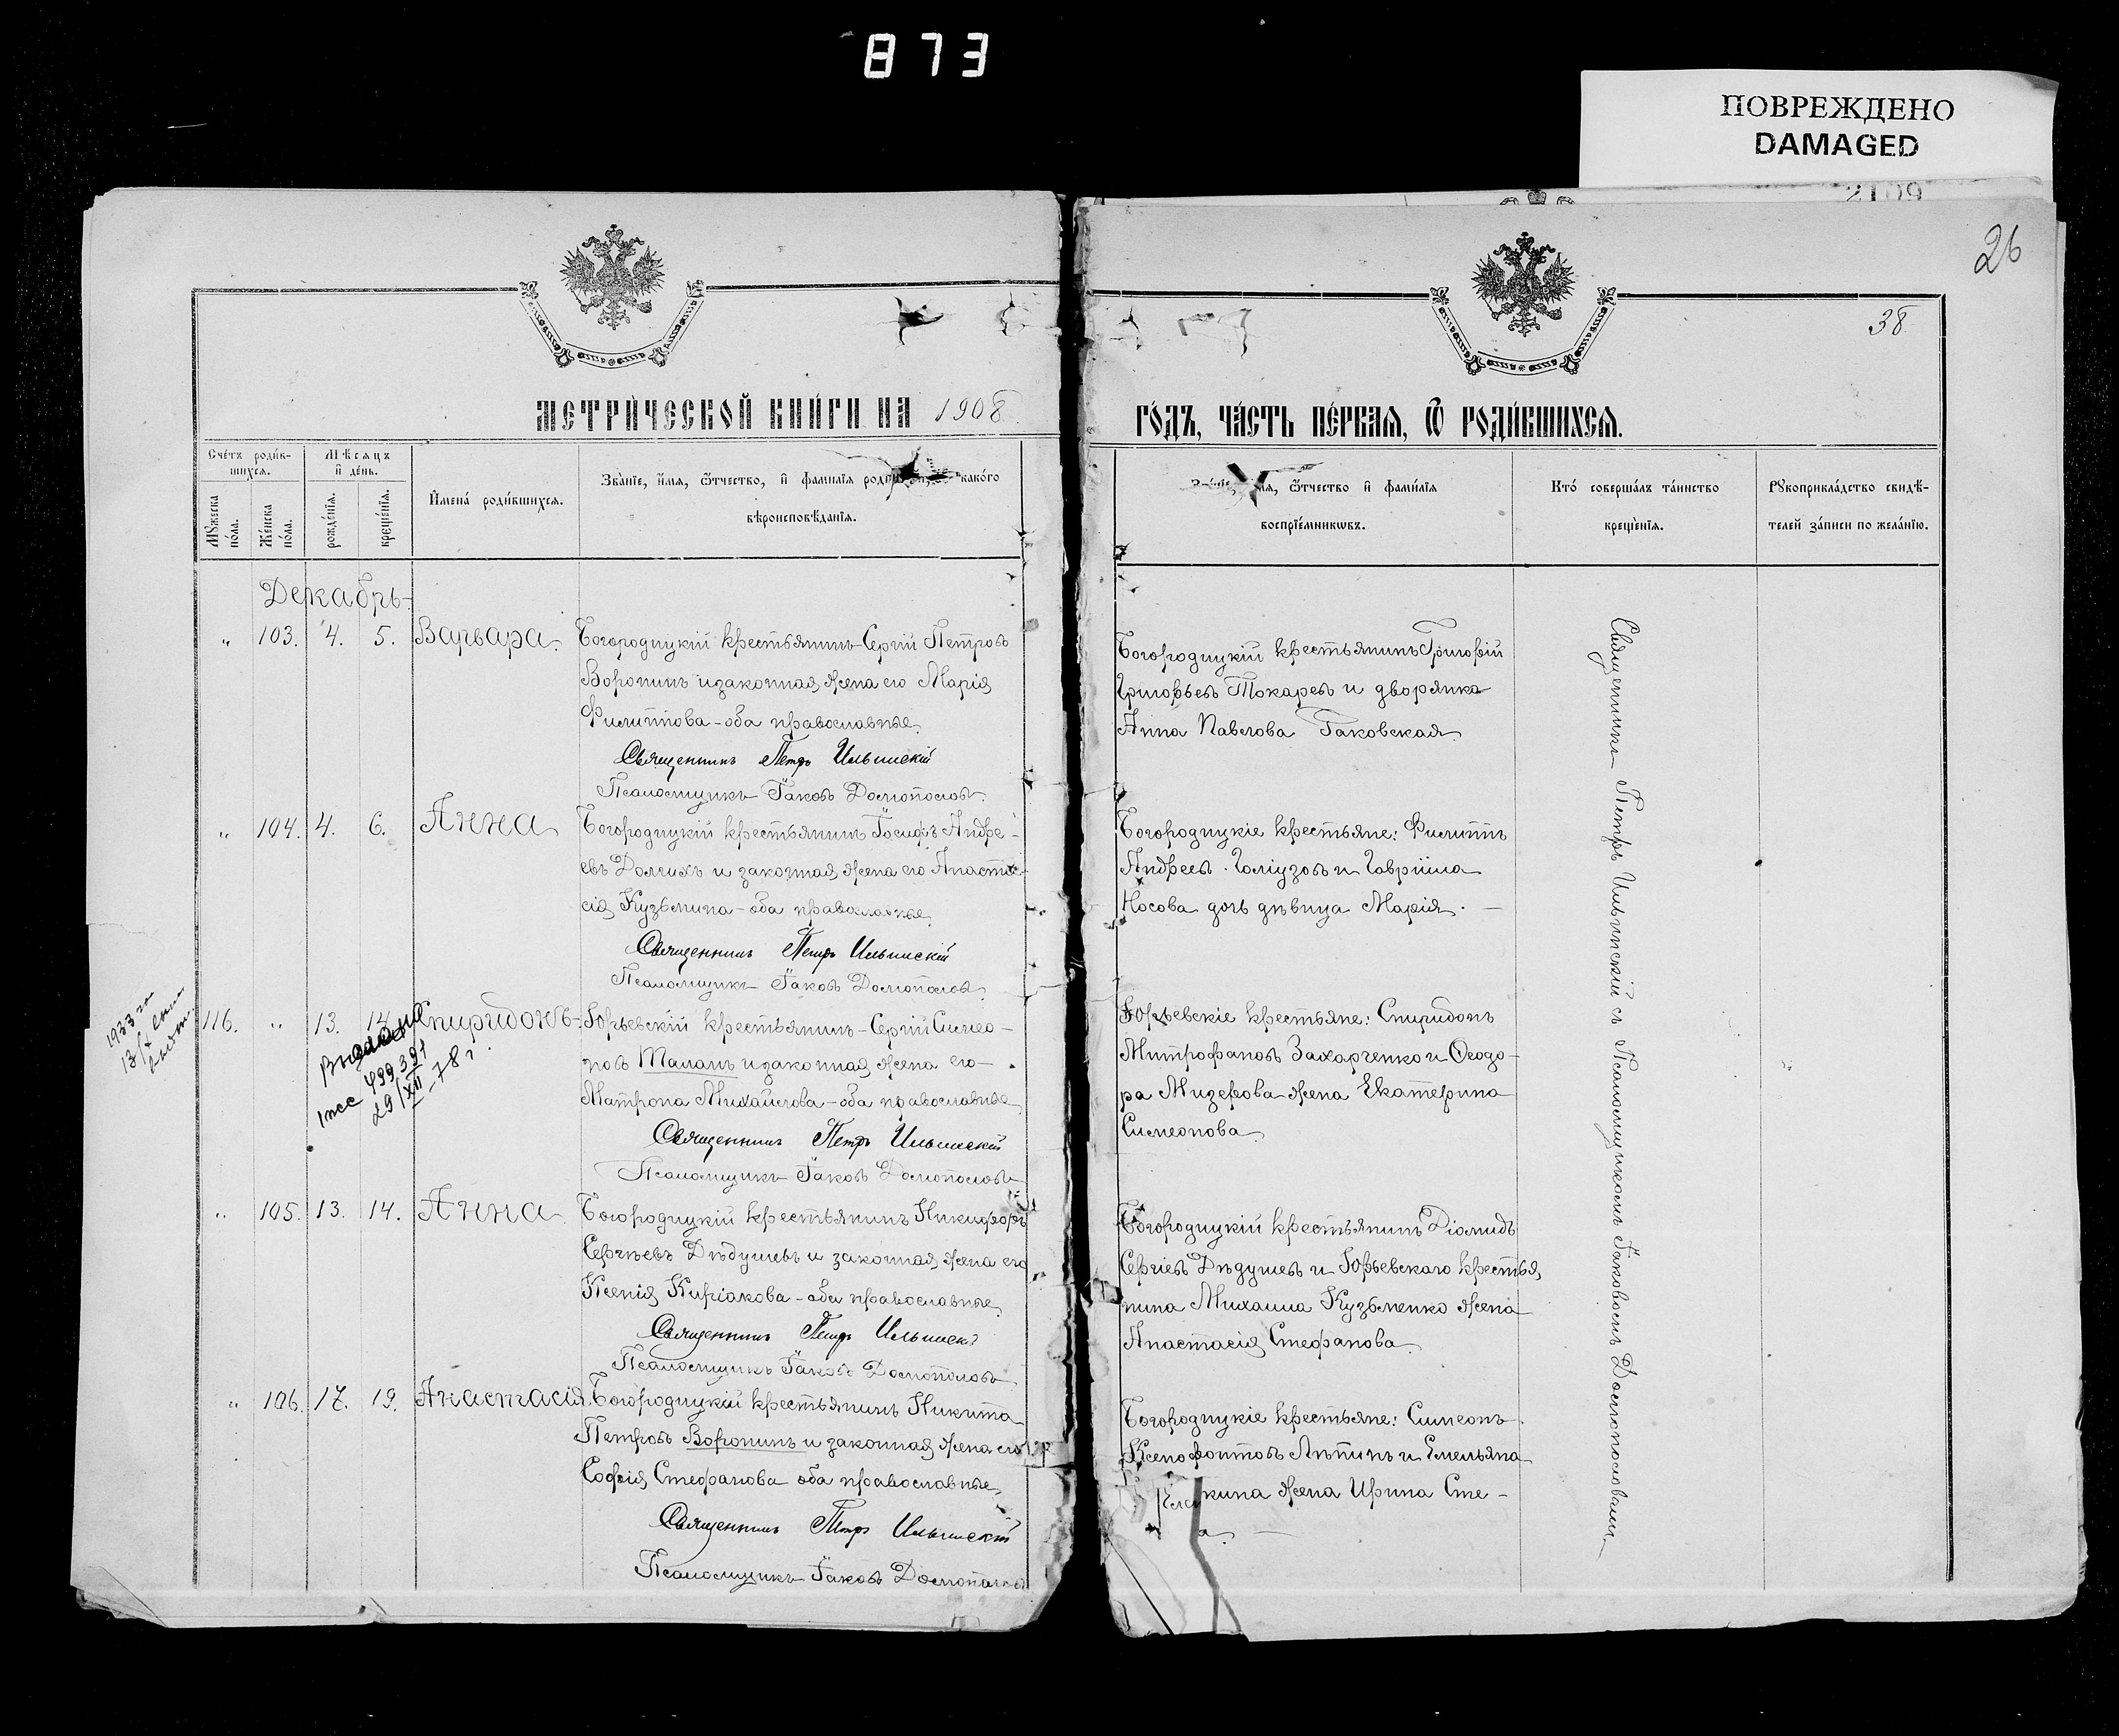 873
ПОВРЕЖДЕНО
DAMAGED
26
38
МЕТРИЧЕСКОЙ КНИГИ НА 1908
ГОДЪ, ЧАСТЬ ПЕРВАЯ, Ѿ РОДИВШИХСЯ.
Счетъ родив-
шихся.
Мѣсяцъ
и день.
Мꙋжеска
пола.
Женска
пола.
рожденія.
крещенія.
Имена родившихся.
Званіе, имя, ѿчество, и фамилія какого
вѣроисповѣданія.
ѿчество и фамилія
воспріемникѡвъ.
Кто совершалъ таинство
крещенія.
Рꙋкоприкладство свидѣ-
телей записи по желанію.
Декабрь
" 103. 4. 5. Варвара.
Богородицкій крестьянинъ Сергій Петровъ
Воронинъ и законная жена его Марія
Филиппова - оба православные.
Священникъ Петръ Ильинскій
Псаломщикъ Іаковъ
Богородицкій крестьянинъ Григорій
Григорьевъ Токаревъ и дворянка
Анна Павлова Гаковская.
" 104. 4. 6. Анна
Богородицкій крестьянинъ Іосифъ Андре-
евъ Долгихъ и законная жена его Анаста-
сія Кузьмина - оба православные.
Священникъ Петръ Ильинскій
Псаломщикъ Іаковъ
Богородицкіе крестьяне: Филиппъ
Андреевъ и Гавріила
Носова дочь дѣвица Марія.
1933 го
13/X
116. " 13. 14. Спиридонъ
499391
29/XII-78 г.
Юрьевскій крестьянинъ - Сергій Симео-
новъ Таланъ и законная жена его -
Матрона Михайлова - оба православные
Священникъ Петръ Ильинскій
Псаломщикъ Іаковъ
Юрьевскіе крестьяне: Спиридонъ
Митрофановъ Захарченко и Ѳеодо-
ра Мизерова жена Екатерина
Симеонова.
" 105. 13. 14. Анна
Богородицкій крестьянинъ Никифоръ
Сергѣевъ Дѣдушевъ и законная жена его
Ксенія Киріакова - оба православные.
Священникъ Петръ Ильинскі
Псаломщикъ Іаковъ
Богородицкій крестьянинъ Діомидъ
Сергіевъ Дѣдушевъ и Юрьевскаго крестья
нина Михаила Кузьменко жена
Анастасія Стефанова.
" 106. 17. 19. Анастасія
Богородицкій крестьянинъ Никита
Петровъ Воронинъ и законная жена его
Софія Стефанова оба православные.
Священникъ Петръ Ильинскій
Псаломщикъ Іаковъ
Богородицкіе крестьяне: Симеонъ
Ксенофонтовъ Лѣтинъ и Емельяна
кина жена Ирина Сте-
а.
Священникъ Петръ Ильинскій съ Псаломщикомъ Іаковомъ